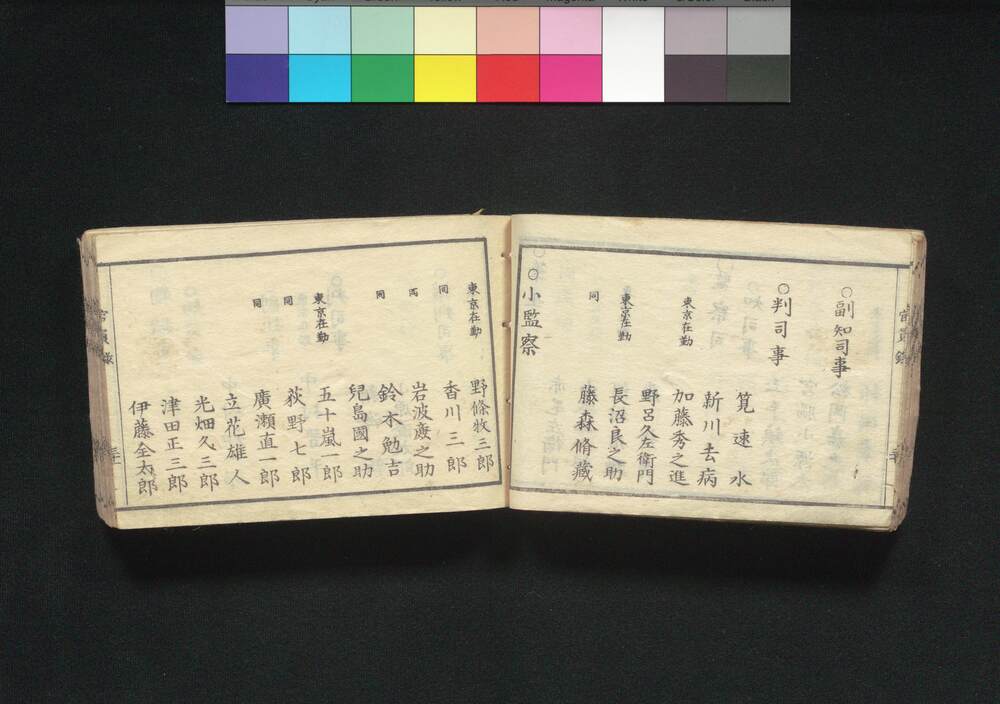 ○副知司事
○判司事
筧速水
新川去病
東京在勤
加藤秀之進
野呂久左衛門
東京在勤
長沼良之助
同
藤森脩蔵
○小監察
東京在勤
野條牧三郎
同
香川三郎
同
岩波慶之助
同
鈴木勉吉
兒島國之助
東京在勤
五十嵐一郎
同
荻野七郎
同
廣瀬直一郎
立花雄人
光畑久三郎
津田正三郎
伊藤全太郎
官員録